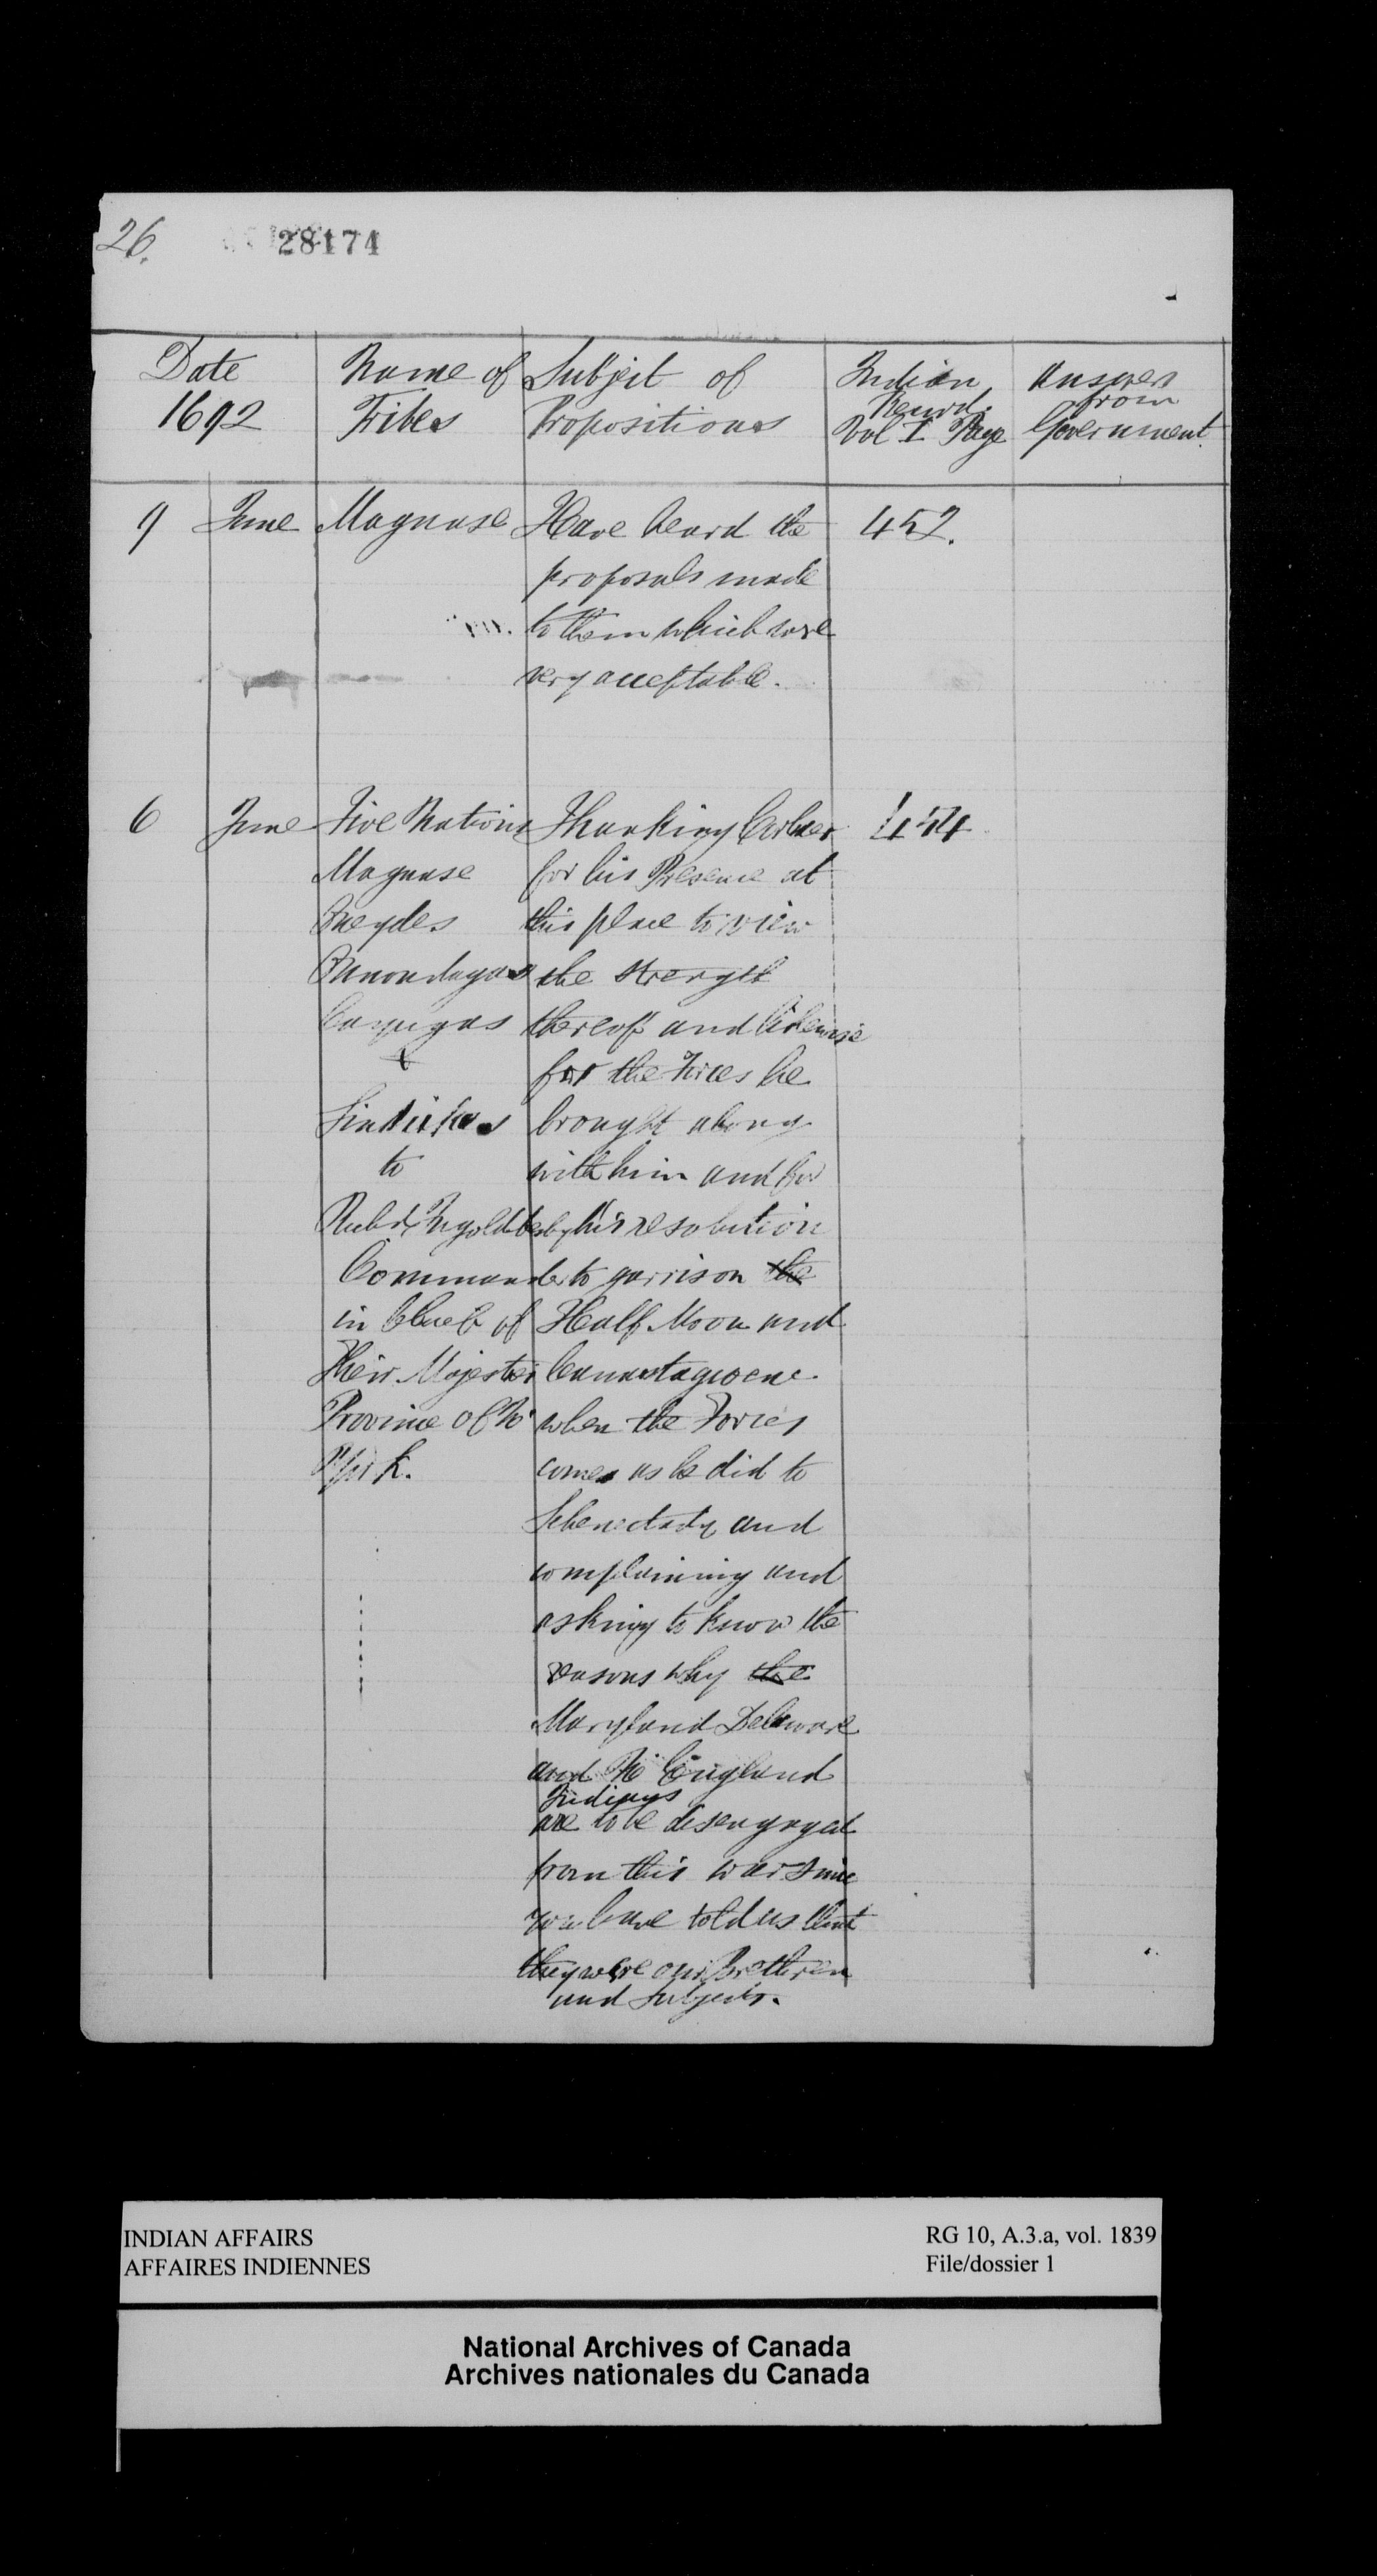 26.
28174
Date
1692
Name of
Tribes
Subject of
Propositions
Indian
Record.
Vol I Page
Answer
from
Government.
9 June Maquase Have heard the 452.
proposals made
to them which were
very acceptable.
6 June Five Nations Thanking Corlaer 454
Maquase for his Presence at
Oneydes this place to view
Onnondagas the strength
Cayugas thereof and likewise
& for the forces he
Sinnikes brought along
to with him and for
Richd Ingoldesby his resolution
Commander to garrison the
in Chief of Half Moon and
Their Majesties Canastagioene
Province of N when the Forces
York. comes as he did to
Schenectady and
complaining and
asking to know the
reasons why the
Maryland Delaware
and N England
Indians
are to be disengaged
from this war since
you have told us that
they were our Brethren
and subjects.
INDIAN AFFAIRS
AFFAIRES INDIENNES
RG 10, A.3.a, vol. 1839
File/dossier 1
National Archives of Canada
Archives nationales du Canada